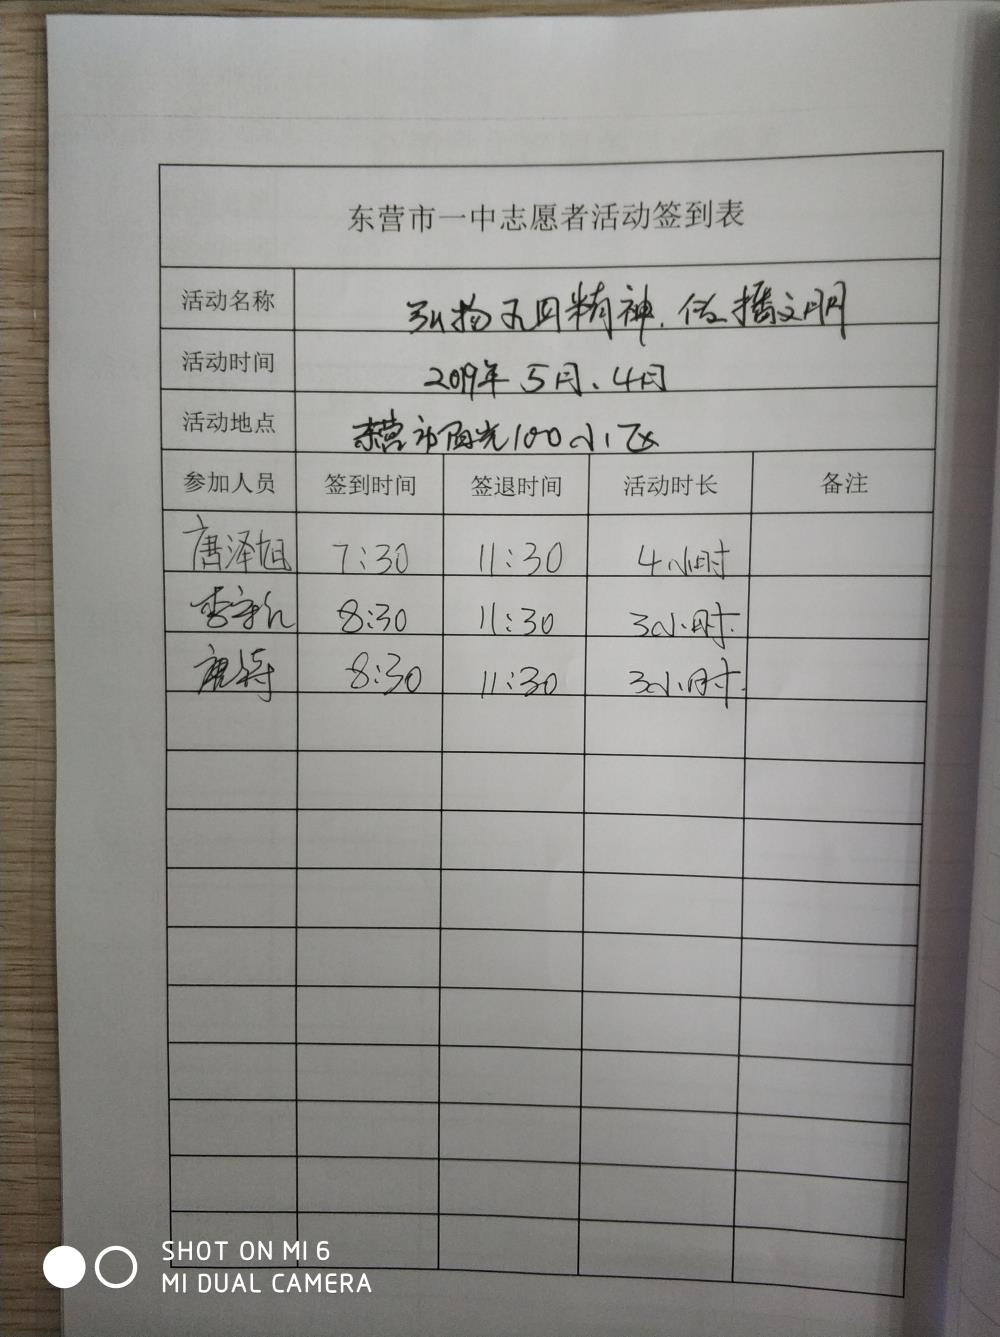 东营市一中志愿者活动签到表
活动名称 弘扬五四精神.传播文明
活动时间 2019年5月、4日
活动地点 东营市阳光100小区
参加人员 签到时间 签退时间 活动时长 备注
唐泽旭 7:30 11:30 4小时
李 8:30 11:30 3小时.
8:30 11:30 3小时.
SHOT ON MI 6
MI DUAL CAMERA